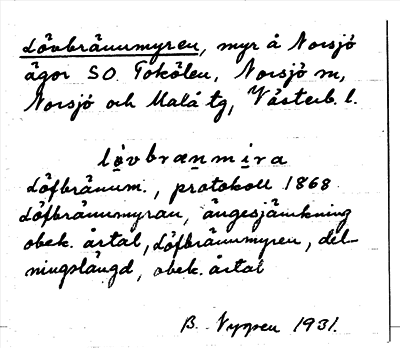 Lövbrännmyren, myr å Norsjö
ägor SO. Tokölen, Norsjö sn,
Norsjö och Malå tg, Västerb. l.
lövbrænmira
Löfbränum., protokoll 1868
Löfbrännmyran, ängesjämkning
obek. årtal, Löfbrännmyren, del-
ningslängd, obek. årtal
B. 1931.